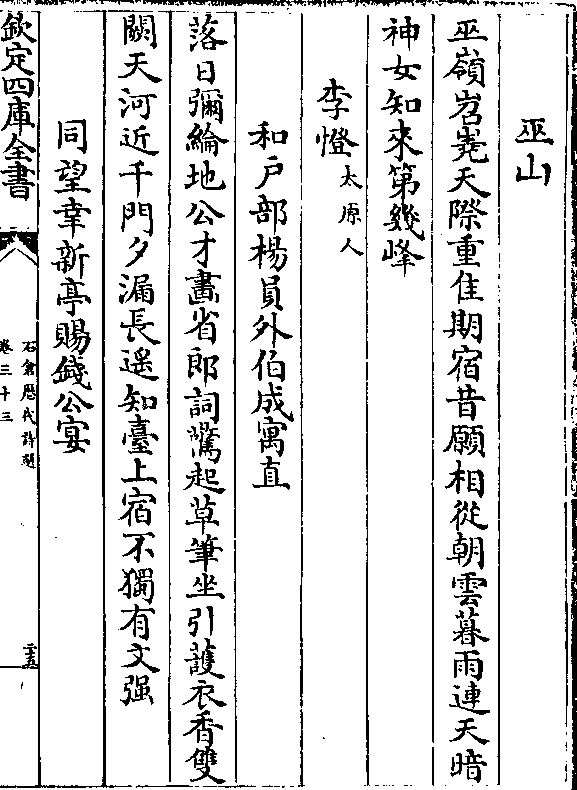 巫山
巫嶺岧嶤天際重佳期宿昔願相從朝雲暮雨連天暗
神女知來第幾峰
李燈太原人
和戶部楊員外伯成寓直
落日彌綸地公才畫省郎詞驚起草筆坐引護衣香雙
闕天河近千門夕漏長遙知臺上宿不獨有文强
同望幸新亭賜錢公宴
欽定四庫全書
石倉歷代詩選
卷三十三
二十五